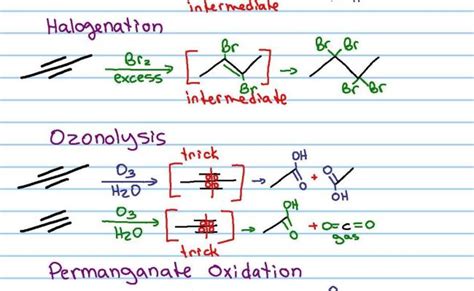 intermediate
Halogenation
Br₂
excess
Br
Br
intermediate
Br Br
Br Br
Ozonolysis
trick
O₃
H₂O
OH
O
+
O
OH
trick
O₃
H₂O
OH
O
+ O=C=O
gas
Permanganate Oxidation